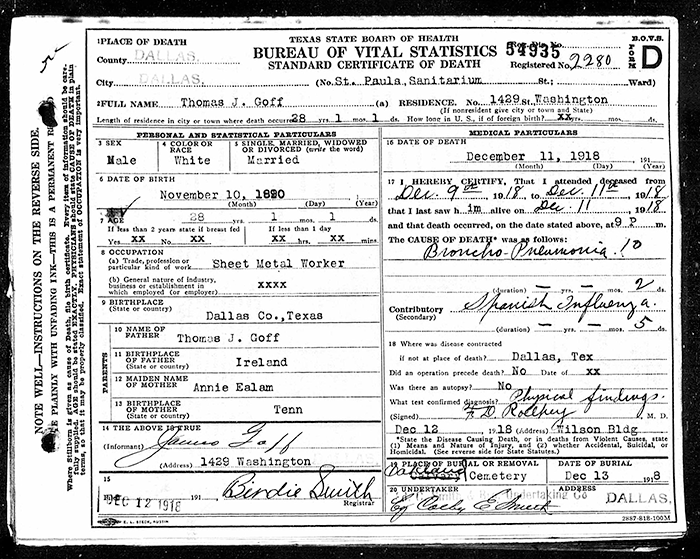 1 PLACE OF DEATH
County DALLAS.
City DALLAS.
TEXAS STATE BOARD OF HEALTH
BUREAU OF VITAL STATISTICS
STANDARD CERTIFICATE OF DEATH
54935
Registered No. 2280
B.O.V.S.
FORM D
(No. St. Paula Sanitarium St.; Ward)
2 FULL NAME Thomas J. Goff (a) RESIDENCE. No. 1429 St. Washington
(If nonresident give city or town and State)
Length of residence in city or town where death occurred 28 1 mos. 1 ds. How long in U. S., if of foreign birth? xx mos. ds.
PERSONAL AND STATISTICAL PARTICULARS
3 SEX
Male
4 COLOR OR RACE
White
5 SINGLE, MARRIED, WIDOWED OR DIVORCED (write the word)
Married
6 DATE OF BIRTH
November 10, 1890
(Month) (Day) (Year)
7 AGE 28 1 mos. 1 ds.
If less than 2 years state if breast fed
Yes xx No xx
If less than 1 day
xx hrs. xx mins.
8 OCCUPATION
(a) Trade, profession or particular kind of work Sheet Metal Worker
(b) General nature of industry, business or establishment in which employed (or employer) xxxx
9 BIRTHPLACE
(State or country)
Dallas Co., Texas
PARENTS
10 NAME OF FATHER
Thomas J. Goff
11 BIRTHPLACE OF FATHER
(State or country)
Ireland
12 MAIDEN NAME OF MOTHER
Annie Ealam
13 BIRTHPLACE OF MOTHER
(State or country)
Tenn
14 THE ABOVE IS TRUE
(Informant) James Goff
(Address) 1429 Washington
15
DEC 12 1918 191
Birdie Smith
Registrar
E. L. STECK, AUSTIN
MEDICAL PARTICULARS
16 DATE OF DEATH
December 11, 1918 191
(Month) (Day) (Year)
17 I HEREBY CERTIFY, That I attended deceased from
Dec. 9th 1918 to Dec. 11th 1918
that I last saw him alive on Dec 11 1918
and that death occurred, on the date stated above, at 9 P m.
The CAUSE OF DEATH* was as follows:
Broncho Pneumonia 10
(duration) — yrs. — mos. 2 ds.
Contributory Spanish Influenza.
(Secondary)
(duration) — yrs. — mos. 5 ds.
18 Where was disease contracted
if not at place of death? Dallas, Tex
Did an operation precede death? No Date of xx
Was there an autopsy? No
What test confirmed diagnosis? Physical findings.
(Signed) M. D.
Dec 12 1918 (Address) Wilson Bldg
*State the Disease Causing Death, or in deaths from Violent Causes, state (1) Means and Nature of Injury, and (2) whether Accidental, Suicidal, or Homicidal. (See reverse side for State Statutes.)
19 PLACE OF BURIAL OR REMOVAL
Oakland
Calvary Cemetery
DATE OF BURIAL
Dec 13 1918
20 UNDERTAKER
Undertaking Co
DALLAS,
2887-818-100M
NOTE WELL—INSTRUCTIONS ON THE REVERSE SIDE.
PLAINLY WITH UNFADING INK—THIS IS A PERMANENT